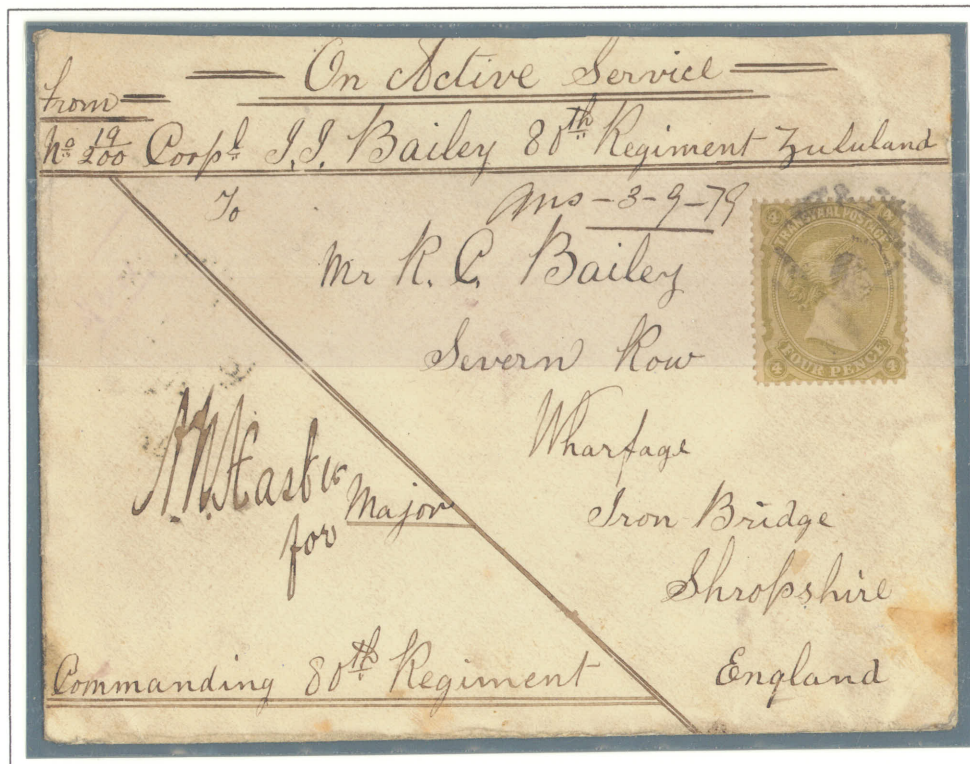 On Active Service
from
No 19/200 Corpl J.J. Bailey 80th Regiment Zululand
To
Ans-3-9-79
Mr R. C. Bailey
Severn Row
Wharfage
Iron Bridge
Shropshire
England
TRANSVAAL POSTAGE
4 4
FOUR PENCE
4 4
for Major
Commanding 80th Regiment